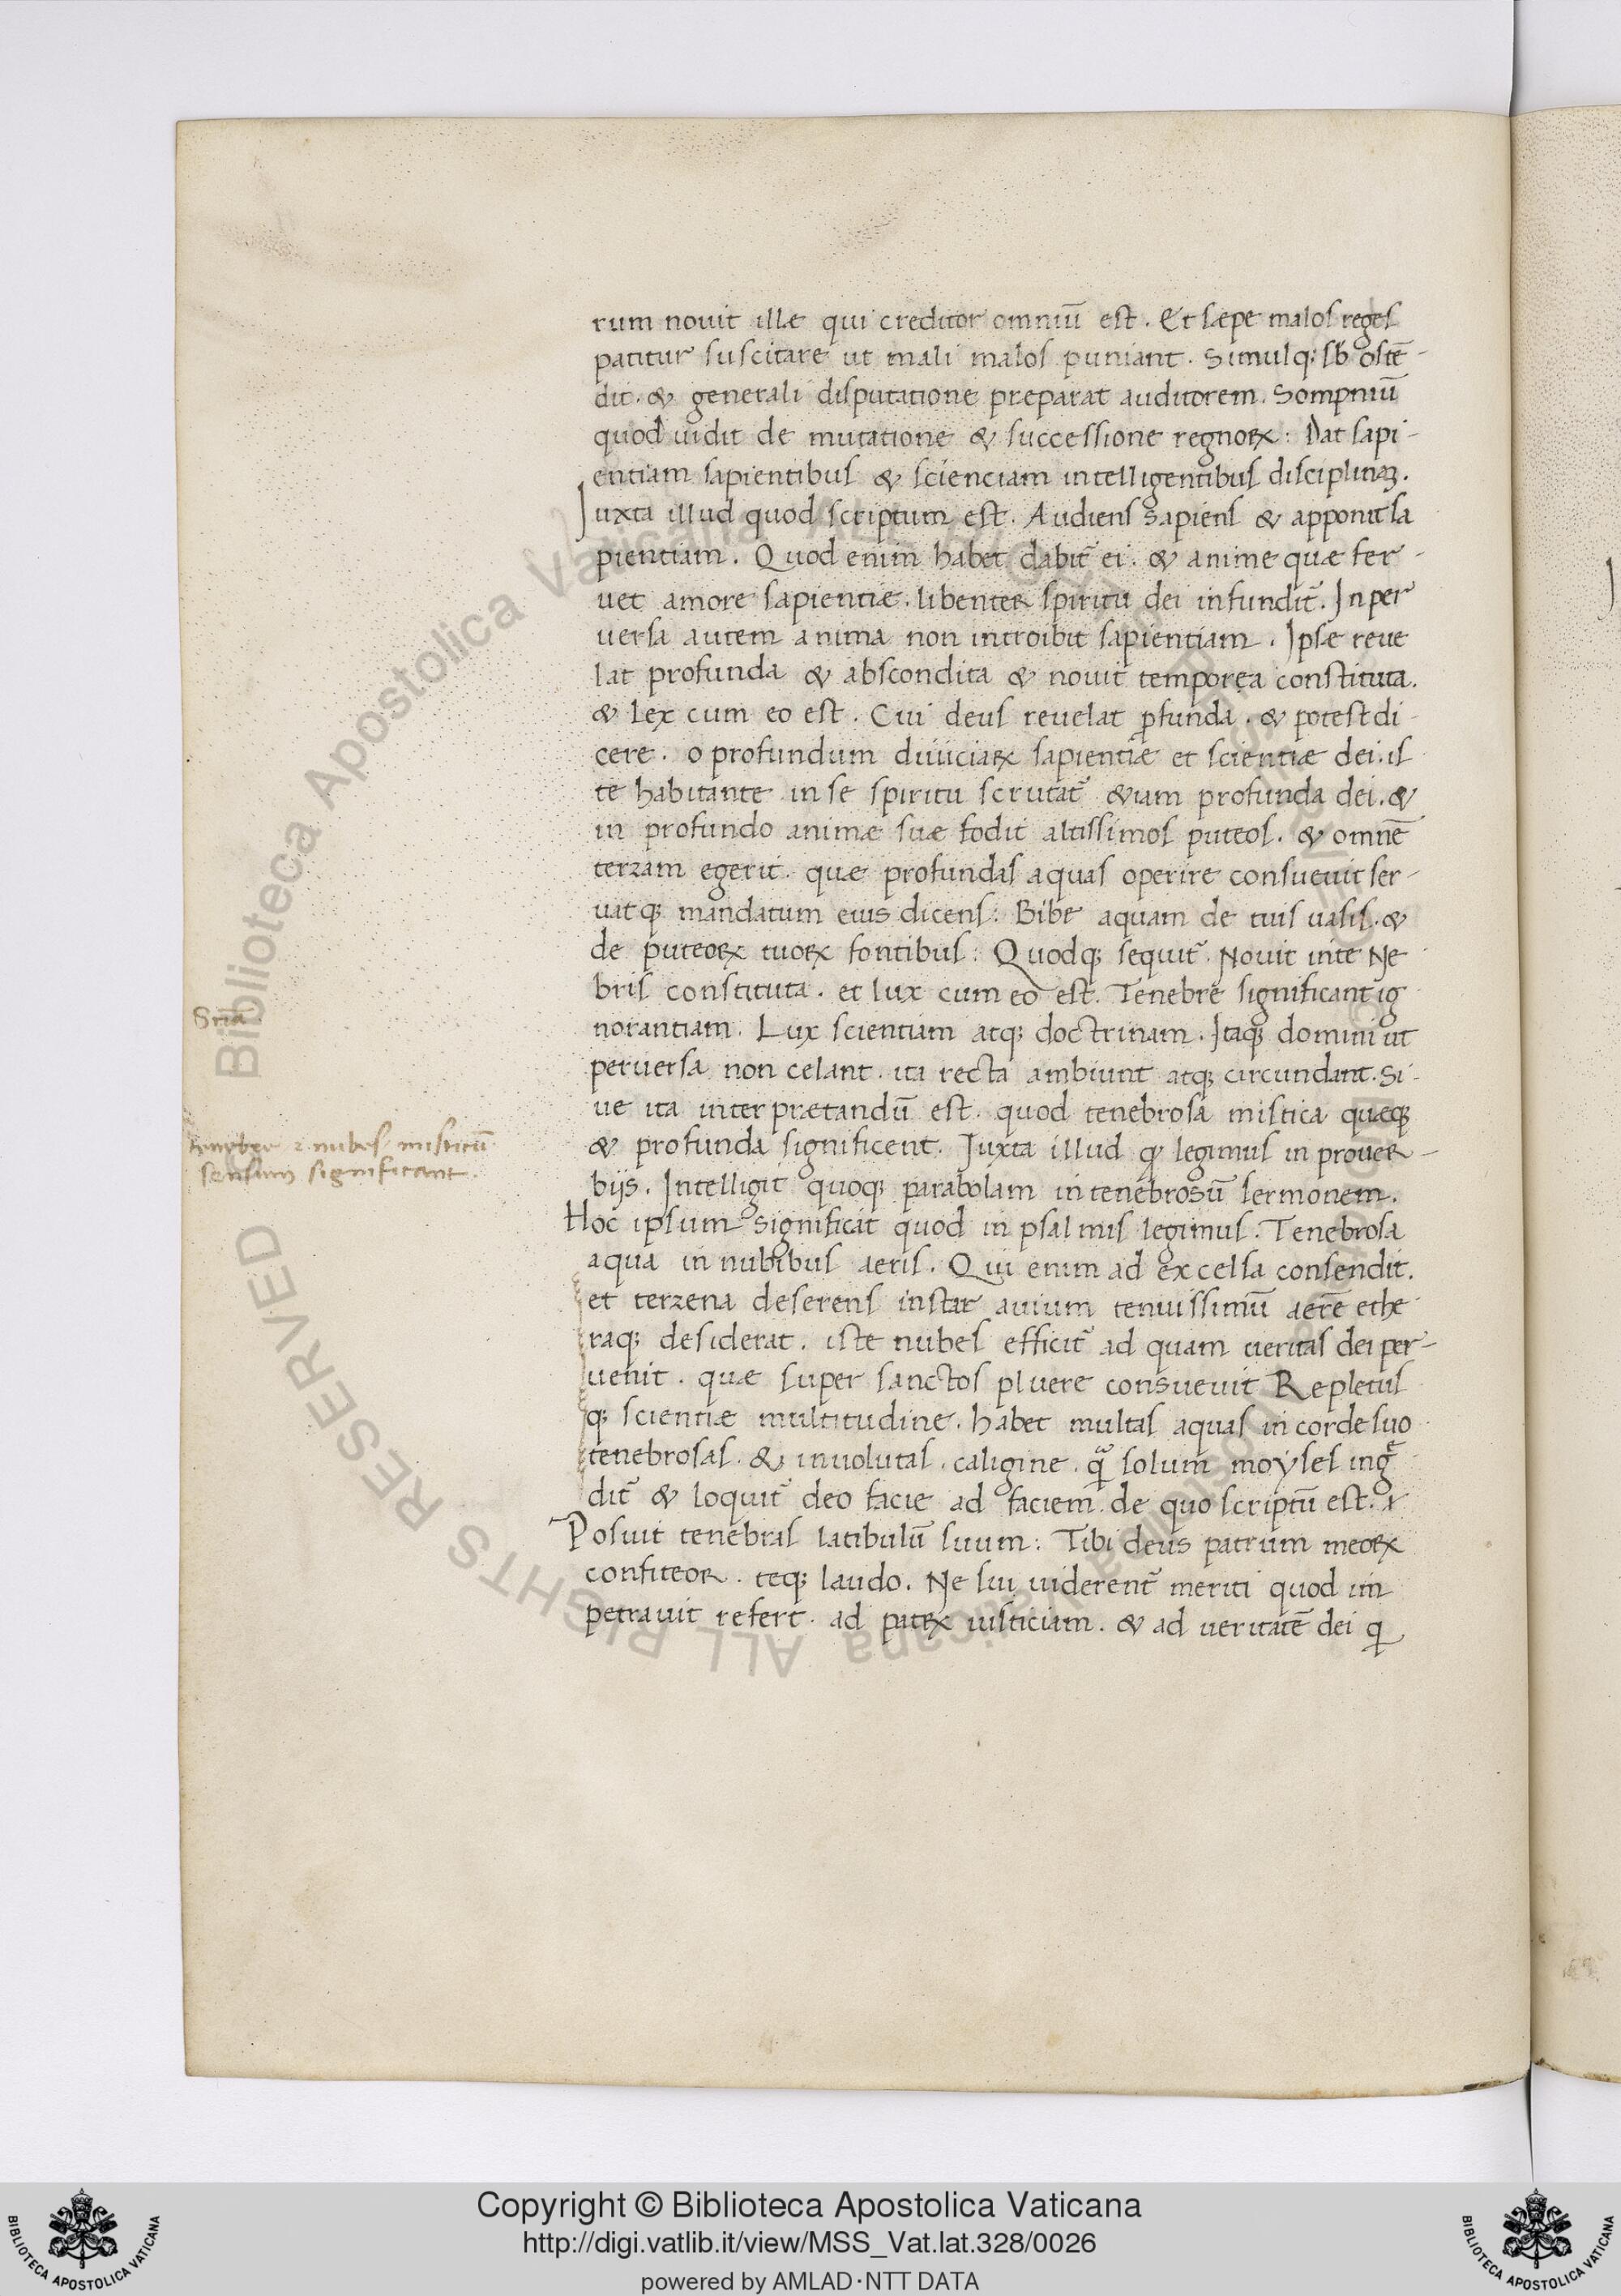 rum nouit ille qui creditor omniū est. Et sæpe malos reges
patitur suscitare ut mali malos puniant. Simulq; sb ostē-
dit. & generali disputatione preparat auditorem. Sompniū
quod uidit de mutatione & successione regnoꝝ: Dat sapi-
entiam sapientibus & scienciam intelligentibus disciplinaꝫ.
Juxta illud quod scriptum est. Audiens sapiens & apponit sa
pientiam. Quod enim habet dabit̃ ei. & anime quæ fer-
uet amore sapientiæ. libenter spiritu dei infundit̃. In per
uersa autem anima non introibit sapientiam. Ipse reue
lat profunda & abscondita & nouit temporea constituta.
& lex cum eo est. Cui deus reuelat ꝓfunda. & potest di-
cere. o profundum diuiciaꝝ sapientiæ et scientiæ dei. is
te habitante in se spiritu scrutat̃ &iam profunda dei. &
in profundo animæ suæ fodit altissimos puteos. & omnē
terram egerit. quæ profundas aquas operire consueuit ser-
uatq; mandatum eius dicens: Bibe aquam de tuis uasis. &
de puteoꝝ tuoꝝ fontibus: Quodq; sequit̃. Nouit inte Ne
bris constituta. et lux cum eo est. Tenebre significant ig
norantiam. Lux scientiam atq; doctrinam. Itaq; domini ut
peruersa non celant. ita recta ambiunt atq; circundant. Si-
ue ita interprætandū est. quod tenebrosa mistica quæq;
& profunda significent. Juxta illud qđ legimus in prouer-
bijs. Intelligit quoq; parabolam in tenebrosū sermonem.
Hoc ipsum significat quod in psalmis legimus. Tenebrosa
aqua in nubibus aeris. Qui enim ad excelsa consendit.
et terrena deserens instar auium tenuissimū aerē ethe
raq; desiderat. iste nubes efficit̃ ad quam ueritas dei per-
uenit. quæ super sanctos pluere consueuit Repletus
q; scientiæ multitudine. habet multas aquas in corde suo
tenebrosas. & inuolutas. caligine. qᵃ̃ solum moyses ingͤ
dit̃ & loquit̃ deo facie ad faciem. de quo scriptū est.
Posuit tenebras latibulū suum: Tibi deus patrum meoꝝ
confiteor. teq; laudo. Ne sui uiderent̃ meriti quod im
petrauit refert. ad patꝝ iusticiam. & ad ueritatē dei q
nubes misticū
sensum significant.
Copyright © Biblioteca Apostolica Vaticana
http://digi.vatlib.it/view/MSS_Vat.lat.328/0026
powered by AMLAD·NTT DATA
BIBLIOTECA APOSTOLICA VATICANA
BIBLIOTECA APOSTOLICA VATICANA
Biblioteca Apostolica Vaticana ALL RIGHTS RESERVED